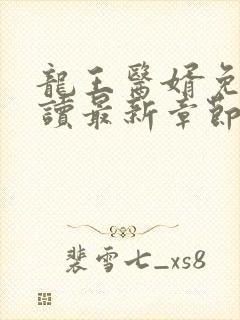 龍王醫婿免
讀最新章節
裴雪七_xs8